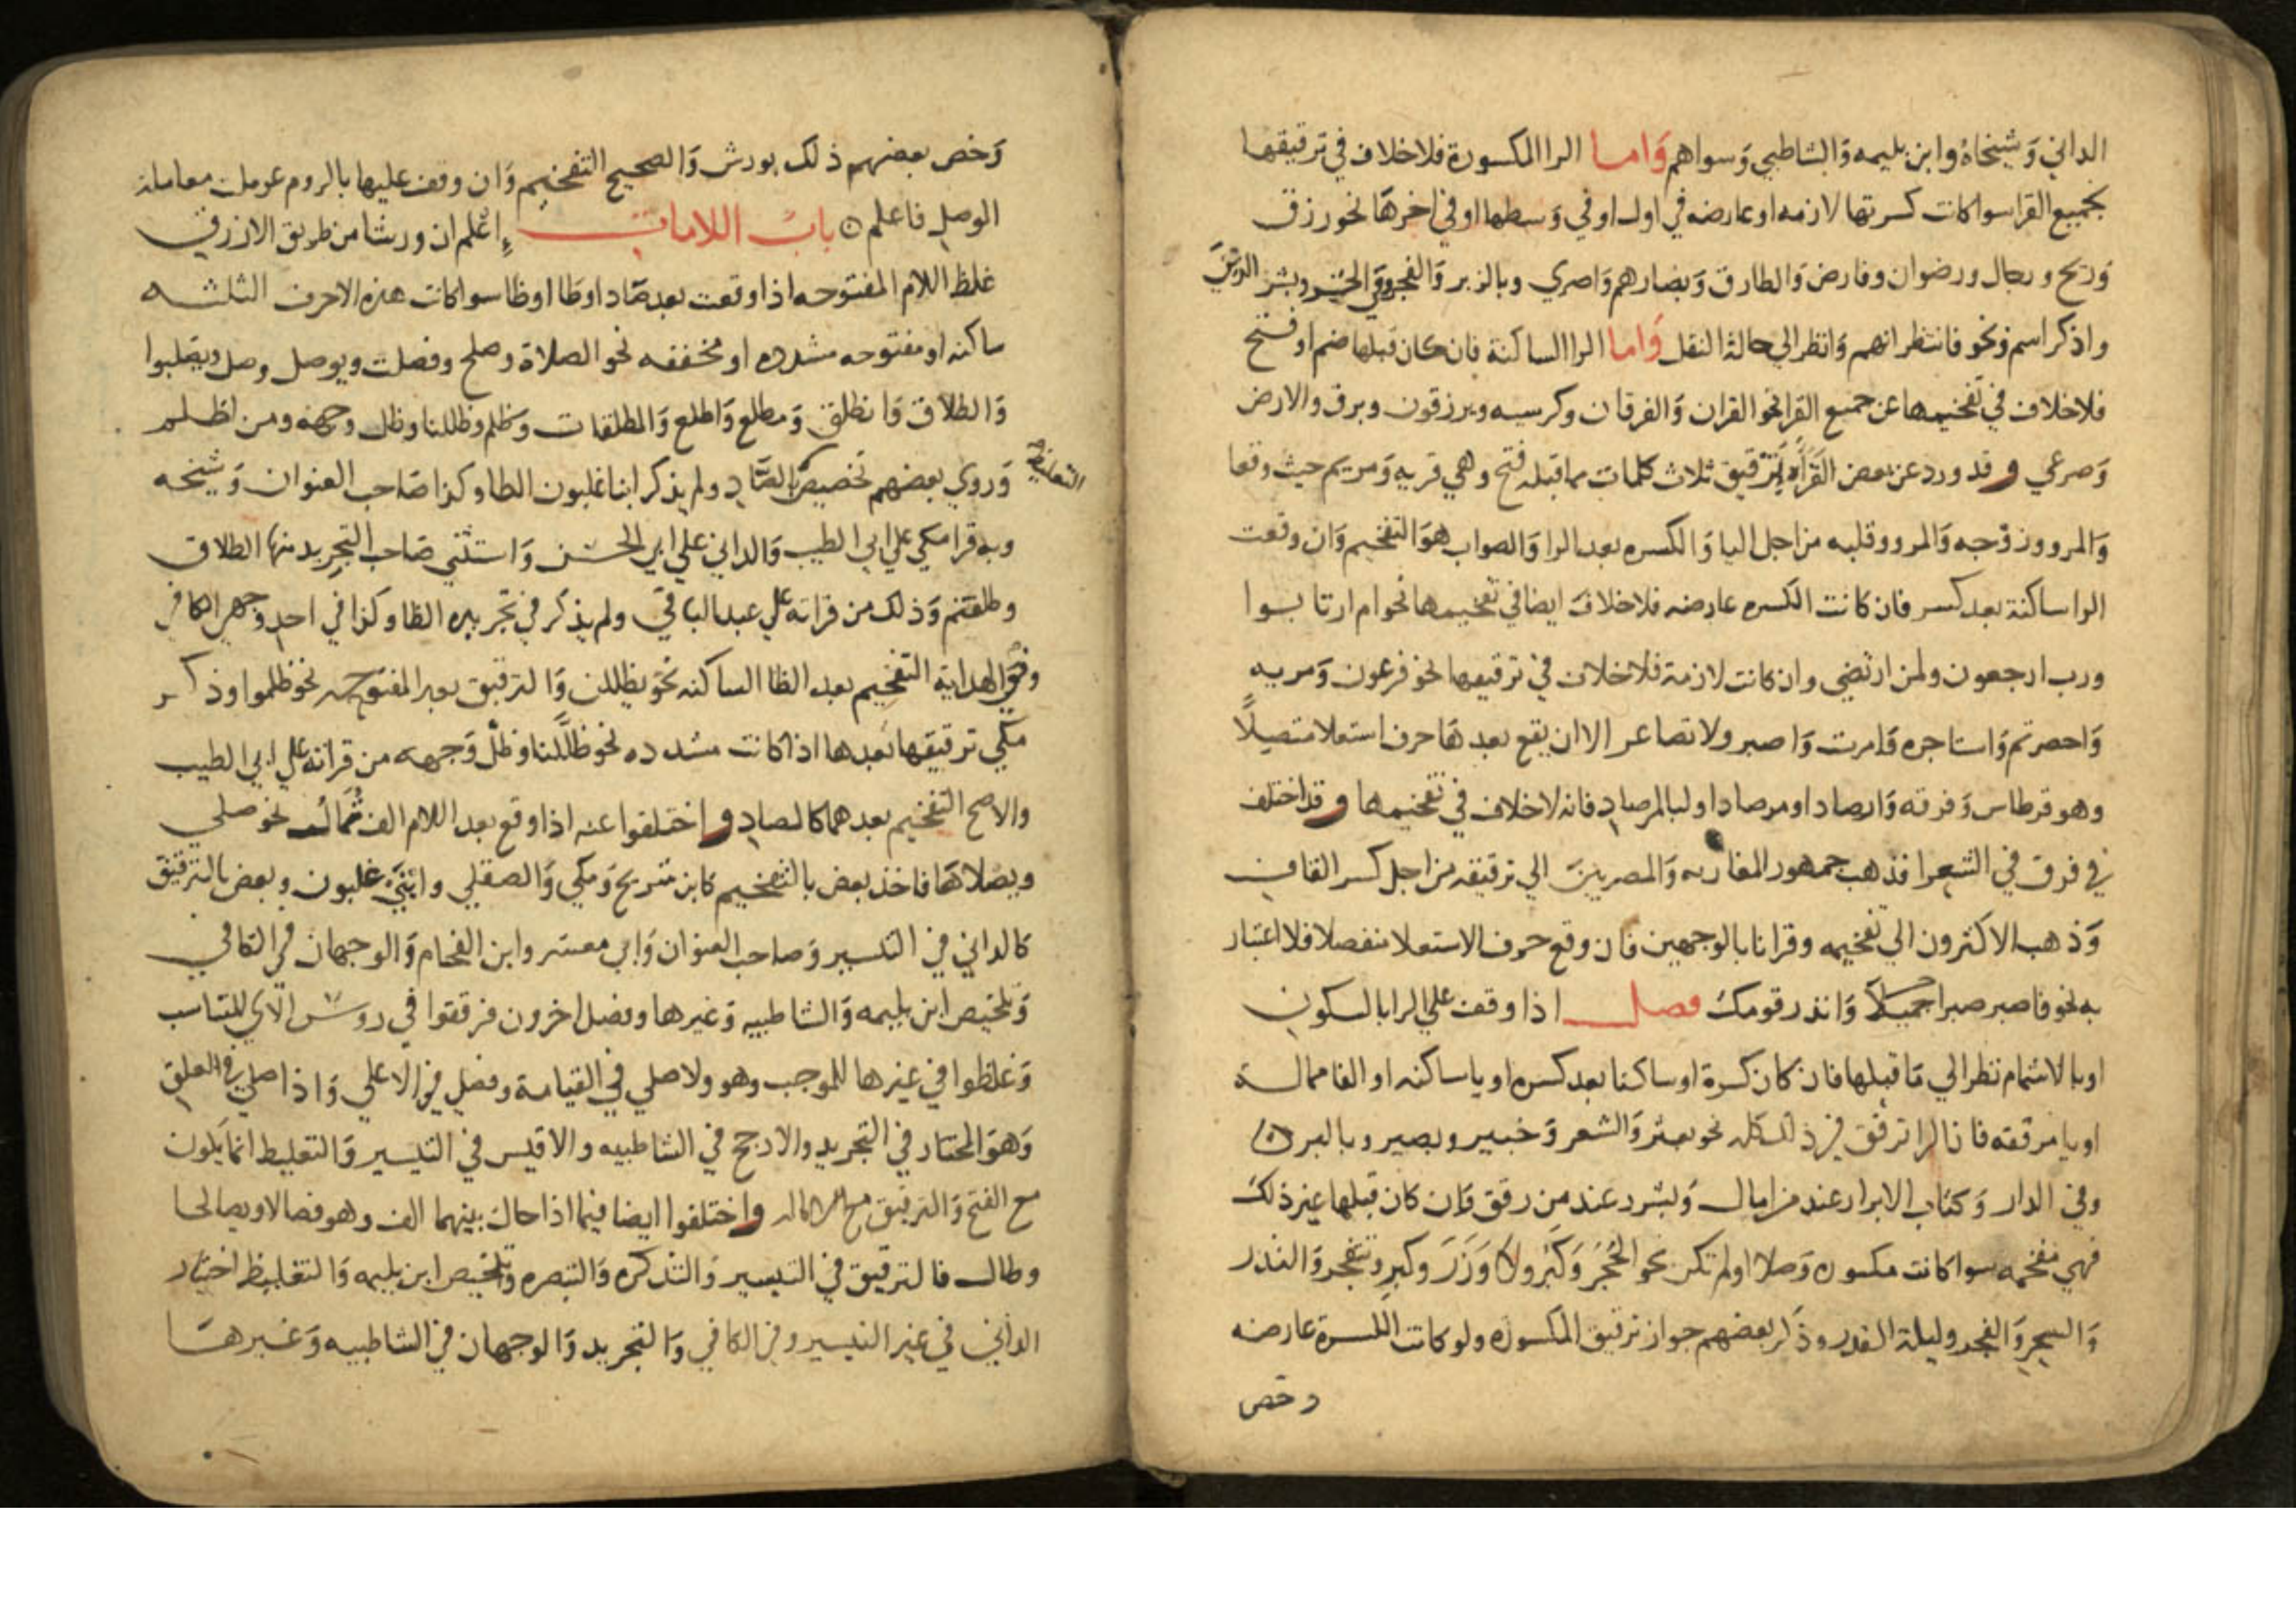 الداني وَشيخاهُ وابن بليمه وَالشاطبي وَسواهم وَاما الرا المكسورة فلاخلاف في ترقيقها
لجميع القرا سوا كانت كسرتها لازمه او عارضه في اول او في وَسطها او في اخرها نحو رزق
وَريح ورجال ورضوان وفارض وَالطارق وَبصارهم وَاصري وبالزبر وَالفجر وَفي الحُر وبشر الذين
واذكر اسم ونحو فانتظر انهم وَانظر الي حالة النقل وَاما الرا الساكنة فان كان قبلها ضم او فتح
فلاخلاف في تفخيمها عن جميع القرا نحو القران وَالفرقان وكرسيه ويرزقون وبرق والارض
وَصرعي وقد ورد عن بعض القُرَّاء تَرقيق ثلاث كلمات مما قبله فتح وهي قريه وَمريم حيث وقعا
وَالمرء وزوجه وَالمرء وقلبه من اجل اليا وَالكسره بعد الرا وَالصواب هوَ التفخيم وَان وقعت
الرا ساكنة بعد كسر فان كانت الكسره عارضه فلاخلاف ايضا في تفخيمها نحو ام ارتابوا
ورب ارجعون ولمن ارتضي وان كانت لازمة فلاخلاف في ترقيقها نحو فرعون وَمريه
وَاحصرتم وَاستاجره وَامرت وَاصبر ولا تصاعر الا ان يقع بعدها حرف استعلا متصلاً
وهو قرطاس وَفرقه وَارصادا ومرصادا ولبالمرصاد فانه لاخلاف في تفخيمها وقد اختلف
في فرق في الشعرا فذهب جمهور المغاربه وَالمصريينَ الي ترقيقه من اجل كسر القاف
وَذهب الاكثرون الي تفخيمه وقرانا بالوجهين فان وقع حرف الاستعلا منفصلا فلا اعتبار
به نحو فاصبر صبرا جميلاً وَانذر قومك فصل اذا وقفت علي الرا بالسكون
او بالاشمام نظر الي مَا قبلها فان كان كسرة او ساكنا بعد كسره او ياساكنه او الفا ممالة
او يا مرققه فان الرا ترقق في ذلك كله نحو بعثر وَالشعر وَخبير وبصير وبالبر
وفي الدار وَكتاب الابرار عند من امال وَبشرر عند من رقق وَان كان قبلها غير ذلك
فهي مفخمه سوا كانت مكسوره وَصلا او لم تكن نحو الحُجُر وَكَبُر ولا وَزَرَ وكبر وتنفجر وَالنذر
وَالسحر وَالفجر وليلة القدر وذكر بعضهم جواز ترقيق المكسوره ولو كانت الكسرة عارضه
وخص
وَخص بعضهم ذلك بورش وَالصحيح التفخيم وَان وقف عليها بالروم عوملت معاملة
الوصل فاعلم باب اللامات اعْلم ان ورشا من طريق الازرق
غلظ اللام المفتوحه اذا وقعت بعد صَاد او طا او ظا سوا كانت هذه الاحرف الثلثه
ساكنه او مفتوحه مشدده او مخففه نحو الصلاة وصلح وفصلت ويوصل وصل ويصلبوا
وَالطلاق وَانطلق وَمطلع وَاطلع وَالمطلقات وَظلم وظللنا وظل وجهه ومن اظلم
وَروي بعضهم تخصيص الصَّاد ولم يذكر ابنا غلبون الطا وكذا صَاحب العنوان وَشيخه
وبه قرا مكي علي ابي الطيب وَالداني علي ابي الحسن وَاستثني صَاحب التجريد منها الطلاق
وطلقتم وَذلك من قراته علي عبد الباقي ولم يذكر في تجريده الظا وكذا في احد وجهي الكافي
وفي الهداية التفخيم بعد الظا الساكنه نحو يظللن وَالترقيق بعد المفتوحه نحو ظلموا وذكر
مكي ترقيقها بعدها اذا كانت مشدده نحو ظلَّلنا وظلَّ وَجهه من قراته علي ابي الطيب
والاصح التفخيم بعدهما كالصاد واختلفوا عنه اذا وقع بعد اللام الف مُمالَه نحو صلي
ويصلاهَا فاخذ بعض بالتفخيم كابن شريح وَمكي وَالصقلي وابنَيْ غلبون وبعض بالترقيق
كالداني في التيسير وَصاحب العنوان وَابي معشر وابن الفحام وَالوجهان في الكافي
وَتلخيص ابن بليمه وَالشاطبيه وَغيرها وفصل اخرون فرققوا في روس الآي للتناسب
وَغلظوا في غيرها للموجب وهو ولا صلي في القيامة وفصلي في الاعلي وَاذا صلي في العلق
وَهوَ المختار في التجريد والارجح في الشاطبيه والاقيس في التيسير وَالتغليظ انما يكون
مع الفتح وَالترقيق مع الاماله واختلفوا ايضا فيما اذا حال بينهما الف وهو فصالا ويصالحا
وطال فالترقيق في التيسير وَالتذكره وَالتبصره وَتلخيص ابن بليمه وَالتغليظ اختيار
الداني في غير التيسير وفي الكافي وَالتجريد وَالوجهان في الشاطبيه وَغيرها